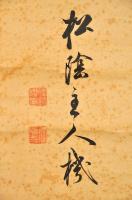 松陰主人機